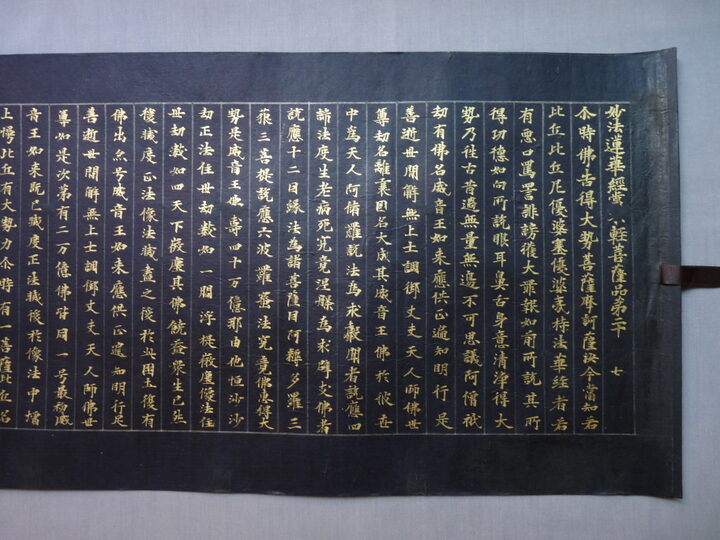 妙法蓮華經常不輕菩薩品第二十　七
尒時佛告得大勢菩薩摩訶薩汝今當知若
比丘比丘尼優婆塞優婆夷持法華經者若
有惡口罵詈誹謗獲大罪報如前所說其所
得功德如向所說眼耳鼻舌身意清淨得大
勢乃往古昔過無量無邊不可思議阿僧祇
劫有佛名威音王如来應供正遍知明行足
善逝世間解無上士調御丈夫天人師佛世
尊劫名離衰國名大成其威音王佛於彼世
中為天人阿脩羅說法為求聲聞者說應四
諦法度生老病死究竟涅槃為求辟支佛者
說應十二因緣法為諸菩薩因阿耨多羅三
藐三菩提說應六波羅蜜法究竟佛慧得大
勢是威音王佛壽四十万億那由他恒沙
劫正法住世劫數如一閻浮提微塵像法住
世劫數如四天下微塵其佛饒益衆生已然
後滅度正法像法滅盡之後於此國土復有
佛出亦号威音王如来應供正遍知明行足
善逝世間解無上士調御丈夫天人師佛世
尊如是次第有二万億佛皆同一号最初威
音王如来既已滅度正法滅後於像法中增
上慢比丘有大勢力尒時有一菩薩比丘名